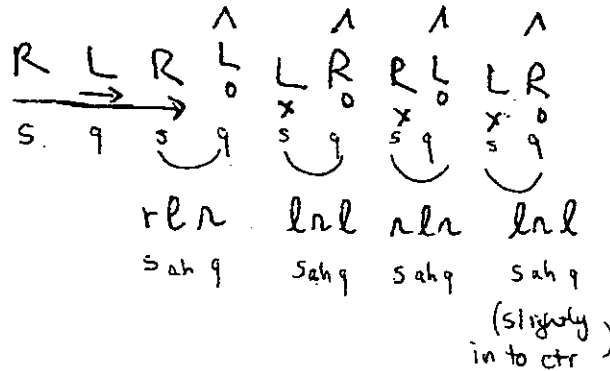 ^ ^ ^ ^
R L R L L R R L L R
o x o x o x o
s. q s q s q s q s q
rlr lrl rlr lrl
s ah q s ah q s ah q s ah q
(slightly
in to ctr)